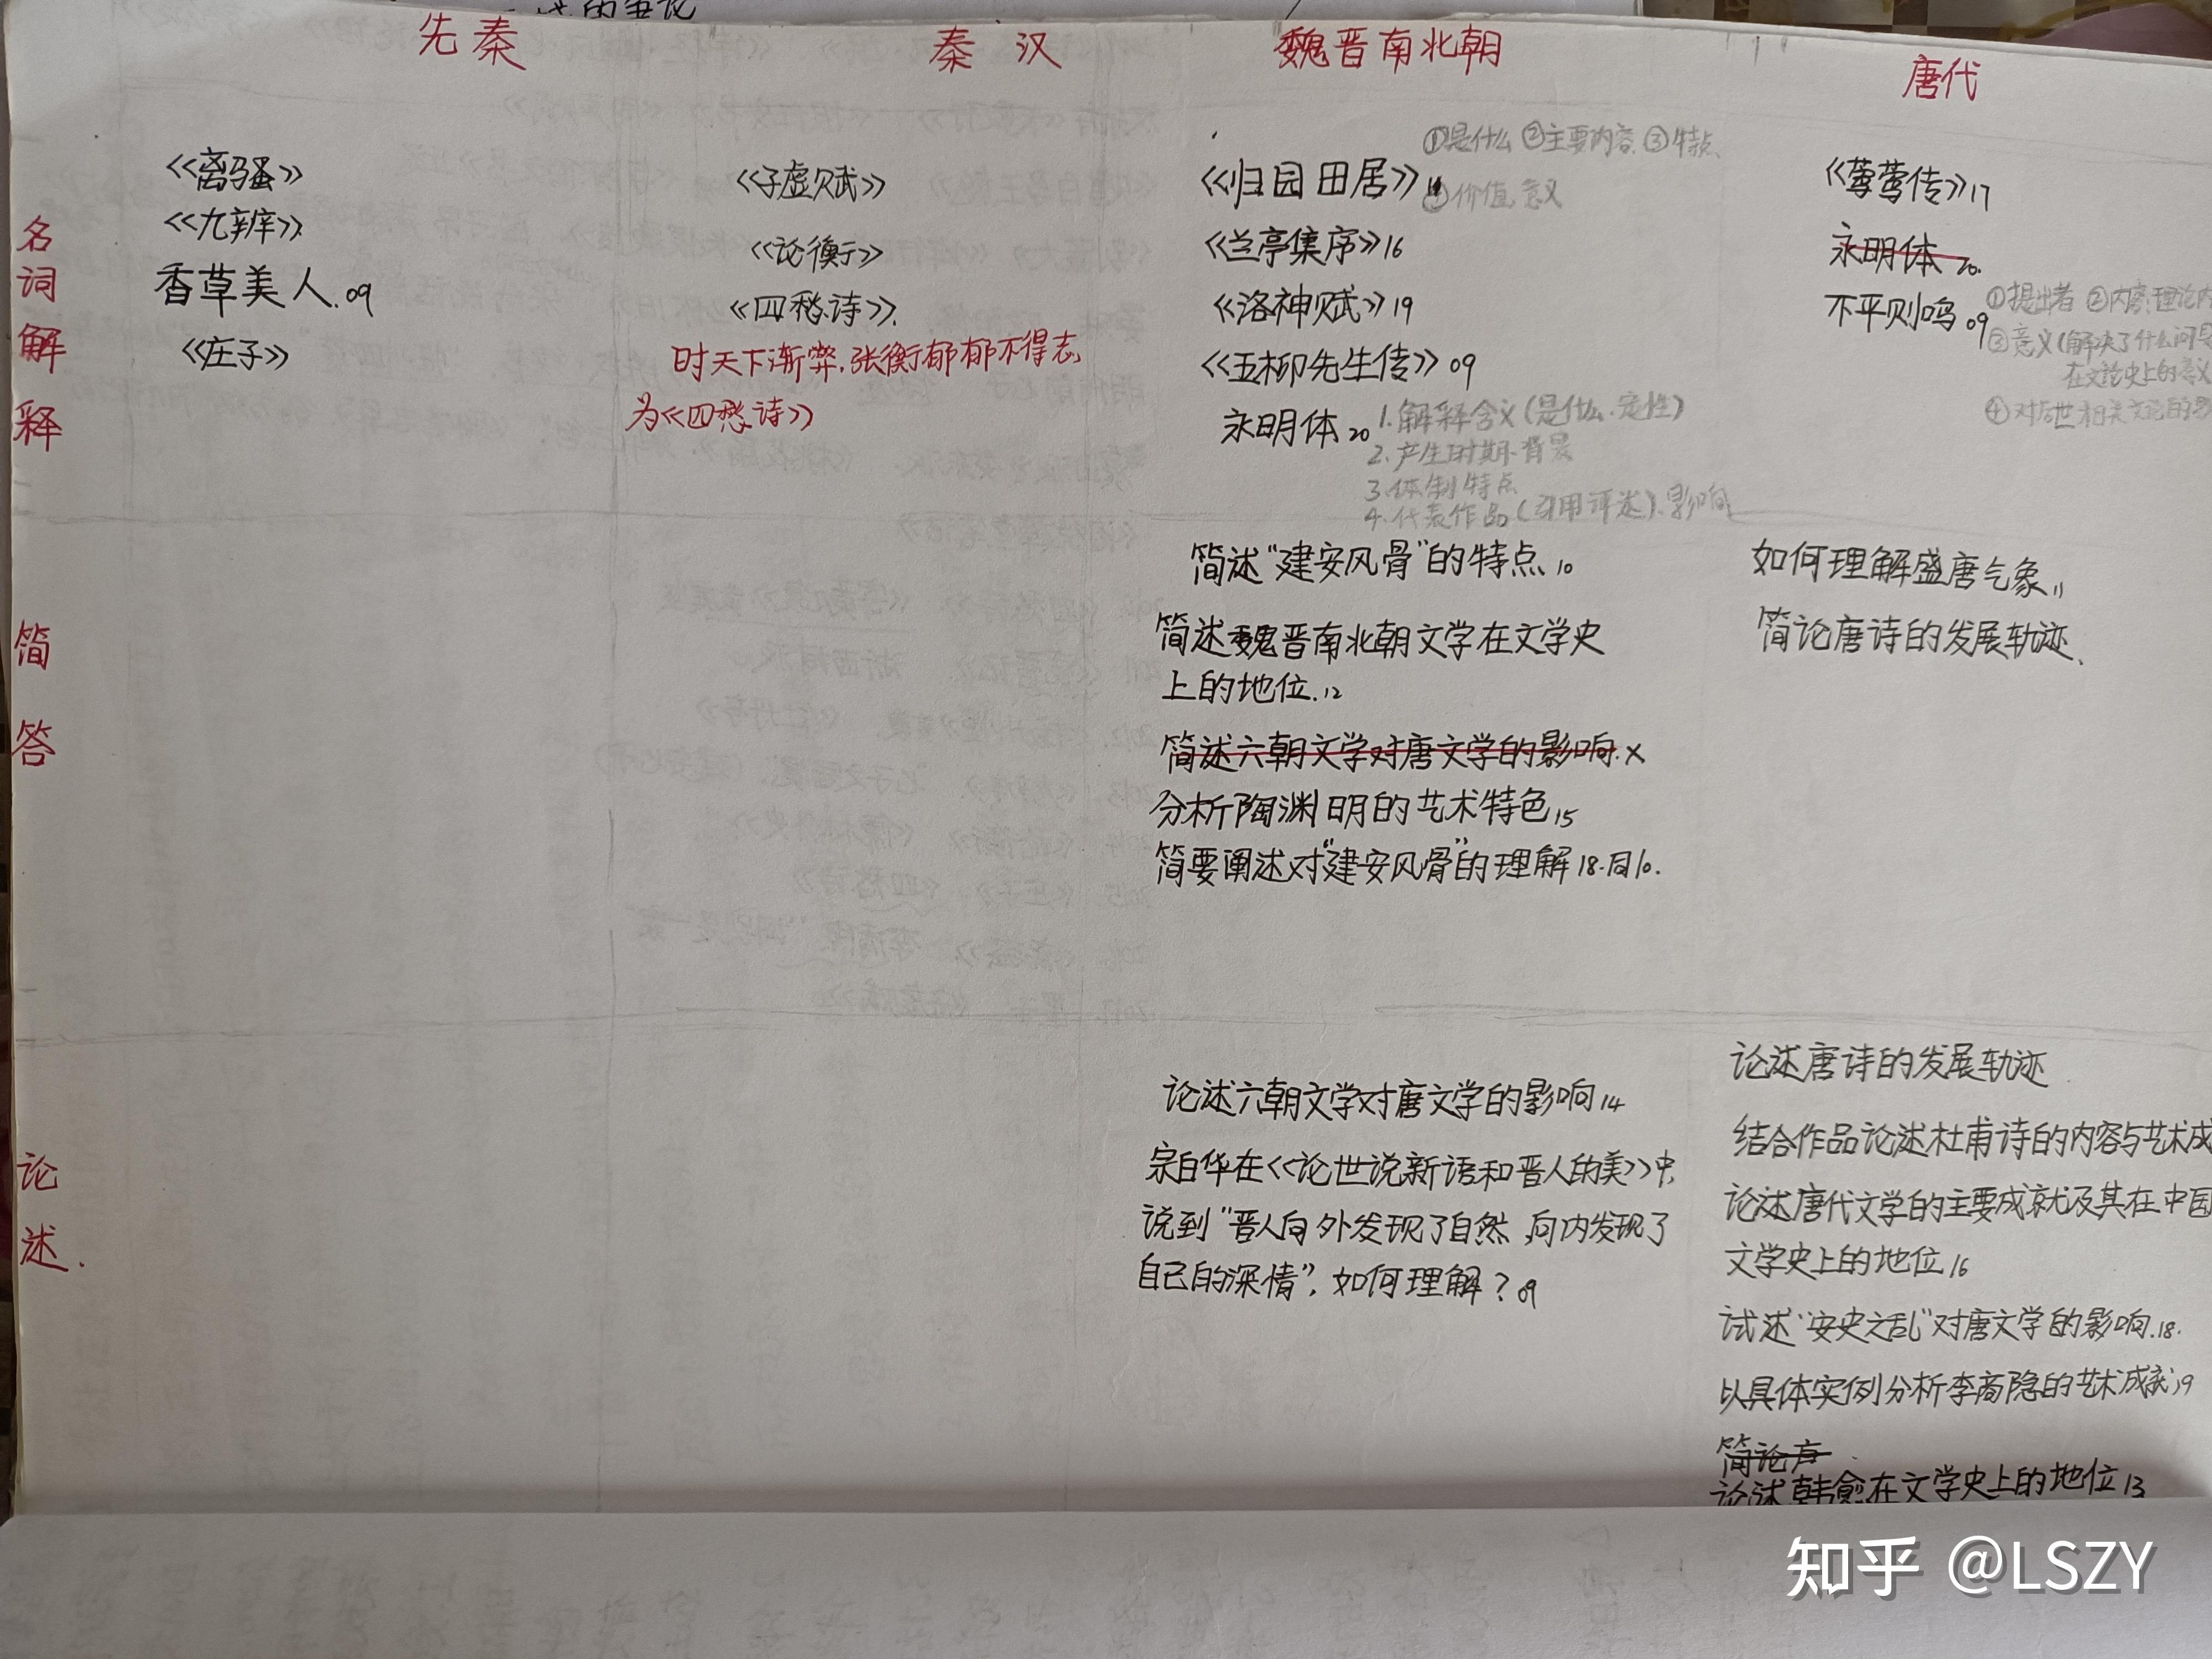 先秦
秦汉
魏晋南北朝
唐代
名词解释
《离骚》
《九辨》
香草美人.09
《庄子》
《子虚赋》
《论衡》
《四愁诗》.
时天下渐弊,张衡郁郁不得志,
为《四愁诗》
①是什么 ②主要内容 ③特点
《归园田居》
④价值意义
《兰亭集序》16
《洛神赋》19
《五柳先生传》09
永明体20
1.解释含义(是什么.定性)
2.产生时期.背景
3.体制特点
4.代表作品(引用评述).影响
《莺莺传》17
永明体20.
不平则鸣09
①提出者 ②内容:理论内
③意义(解决了什么问
在文论史上的意义
④对后世相关文论的影
简答
简述"建安风骨"的特点10
简述魏晋南北朝文学在文学史
上的地位.12
简述六朝文学对唐文学的影响.×
分析陶渊明的艺术特色15
简要阐述对"建安风骨"的理解18.同10.
如何理解盛唐气象11
简论唐诗的发展轨迹、
论述.
论述六朝文学对唐文学的影响14
宗白华在《论世说新语和晋人的美》中,
说到"晋人向外发现了自然,向内发现了
自己的深情",如何理解?09
论述唐诗的发展轨迹
结合作品论述杜甫诗的内容与艺术成
论述唐代文学的主要成就及其在中国
文学史上的地位16
试述"安史之乱"对唐文学的影响.18.
以具体实例分析李商隐的艺术成就19
简论唐
论述韩愈在文学史上的地位13
知乎 @LSZY